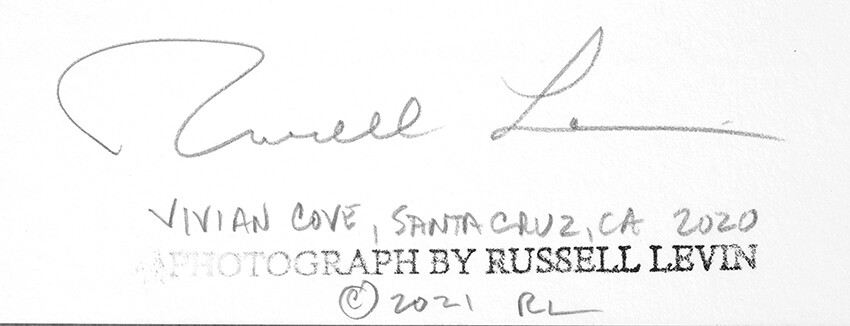 Russell Levin
VIVIAN COVE, SANTA CRUZ, CA 2020
PHOTOGRAPH BY RUSSELL LEVIN
© 2021 RL